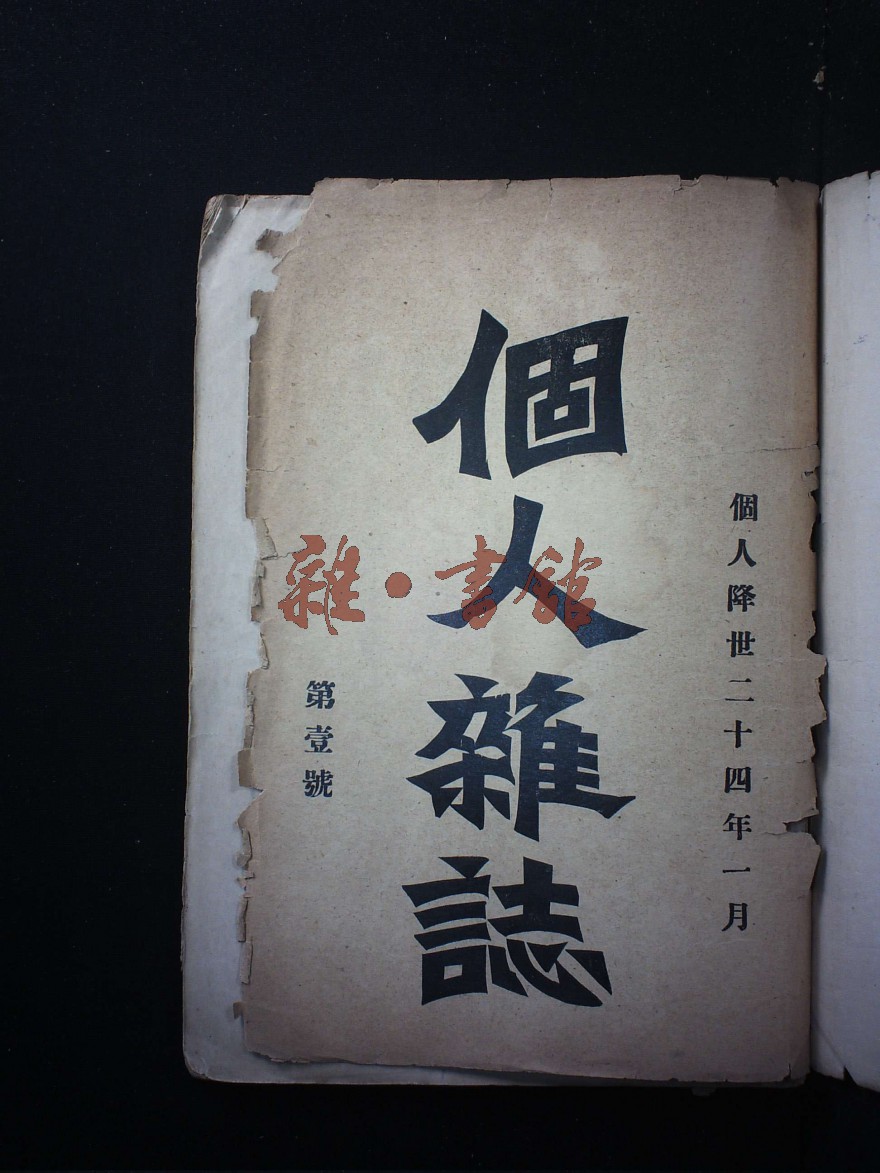 個人降世二十四年一月
個人雜誌
第壹號
雜·書館